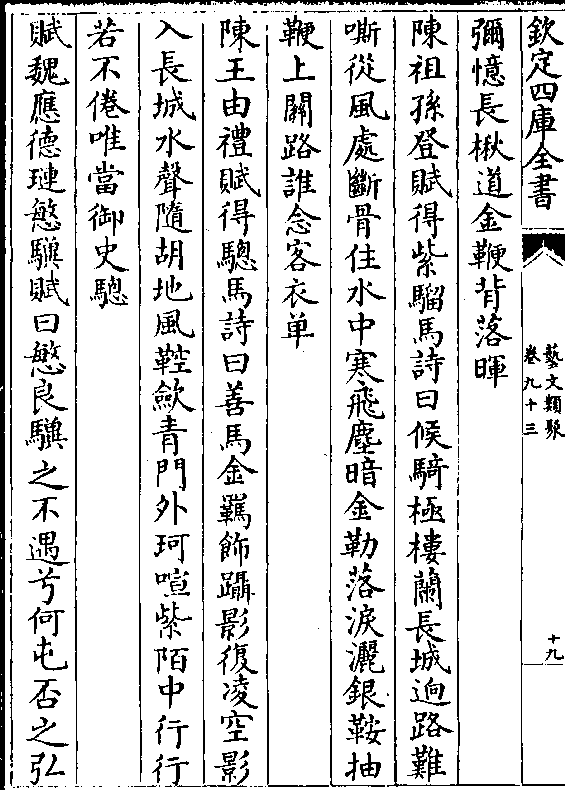 欽定四庫全書
藝文類聚
卷九十三
十九
彌憶長楸道金鞭背落暉
陳祖孫登賦得紫騮馬詩曰候騎極樓蘭長城迥路難
嘶從風處斷骨住水中寒飛塵暗金勒落淚灑銀鞍抽
鞭上關路誰念客衣单
陳王由禮賦得驄馬詩曰善馬金羈飾躡影復凌空影
入長城水聲隨胡地風鞚歛青門外珂喧紫陌中行行
若不倦唯當御史驄
賦魏應德璉慜驥賦曰慜良驥之不遇兮何屯否之弘